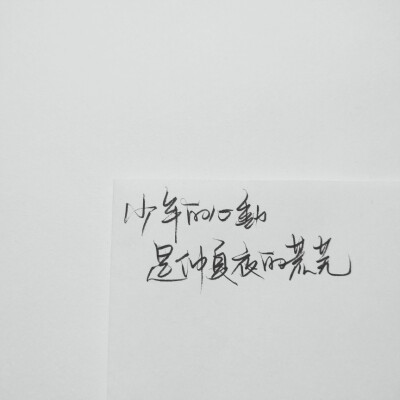 少年的心動
是仲夏夜的荒芜